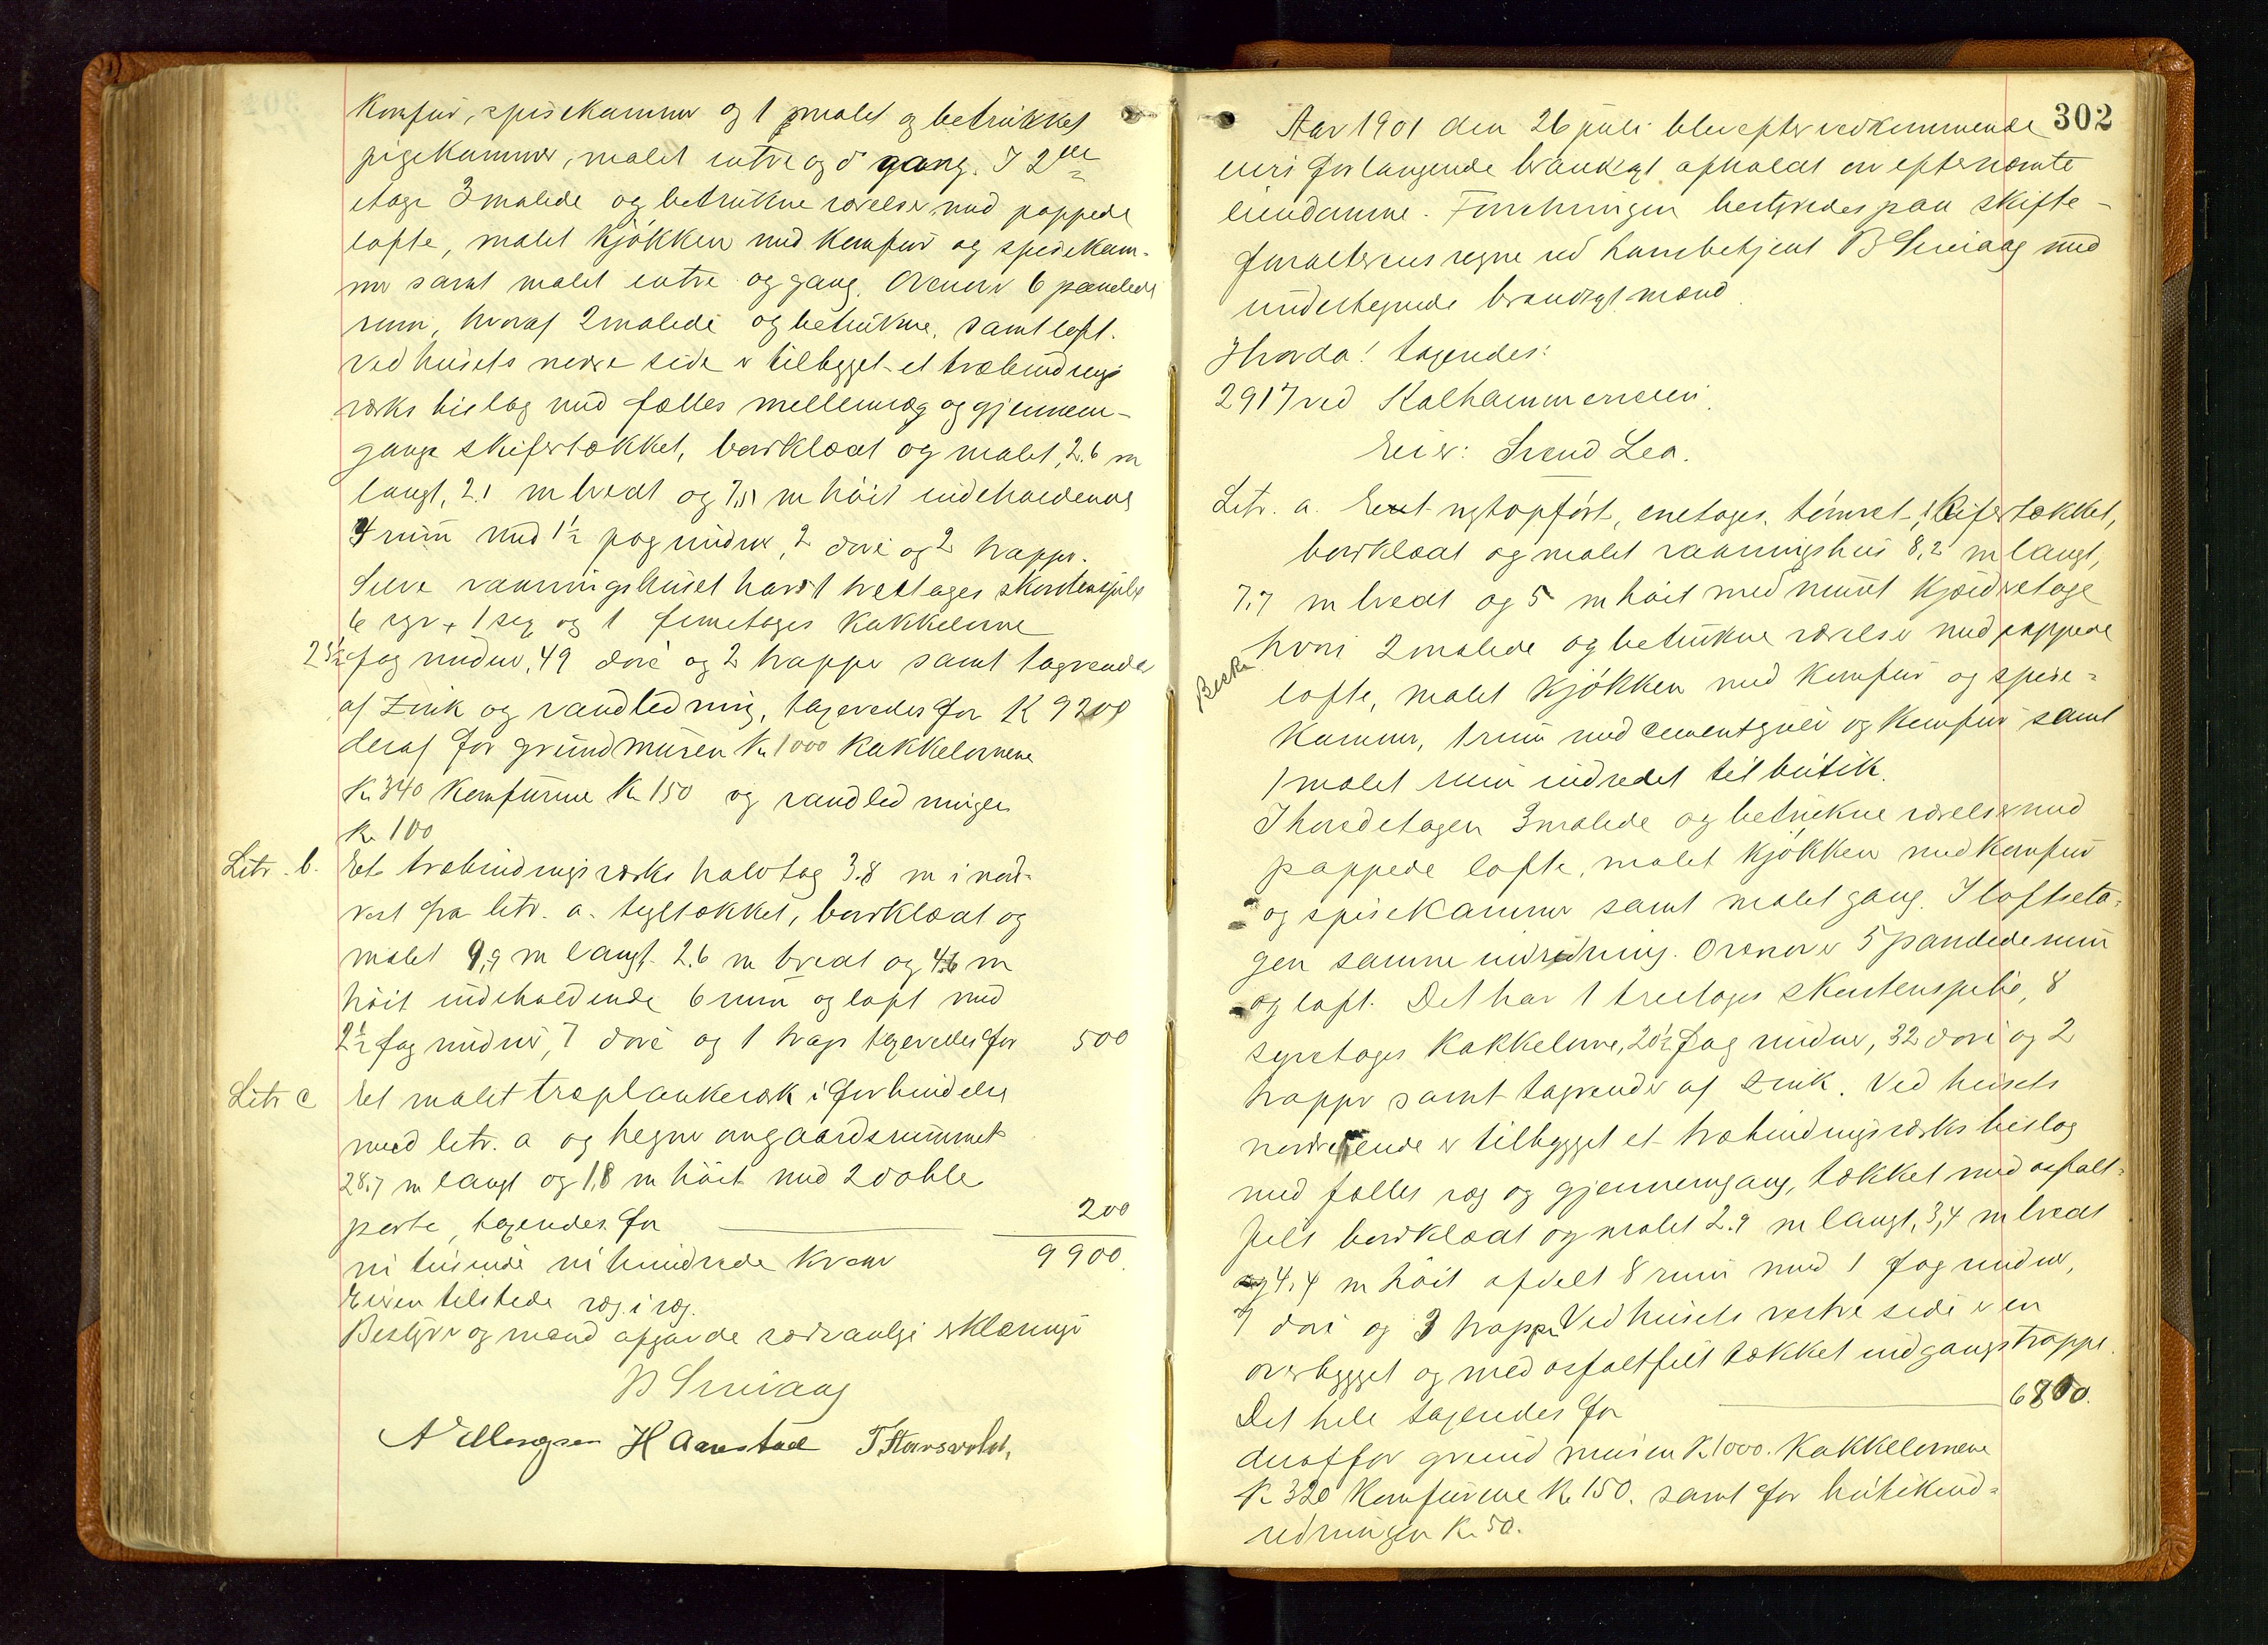 Komfur, spisekammer og 1 malet og betrukket
pigekammer, malet entre og gang. I 2den
etage 3 malede og betrukne værelser med pappede
lofte, malet Kjøkken med Komfur og spisekam-
mer samt malet entre og gang. Ovenover 6 panelede
rum, hvoraf 2 malede og betrukne, samt loft.
Ved husets nordre side er tilbygget et træbindings
værks bislag med fælles mellemvæg og gjennem-
gange skifertækket, bordklædt og malet, 2.6 m
langt, 2.1 m bredt og 7,51 m høit indeholdende
4 rum med 1½ fag vinduer, 2 døre og 2 trapper.
Selve vaaningshuset har 1 treetages skorstenspibe
6 og 1 femetages Kakkelovne
fag vinduer, 49 døre og 2 trapper samt tagrender
af Zink og vandledning, taxeredes for K 9200
deraf for grundmuren Kr 1000 Kakkelovnene
Kr 340 Komfurene Kr 150 og vandledningen
Kr. 100
Litr. b. Et træbindingsværks halvtag 3.8 m i nord-
vest fra litr. a. tegltækket, bordklædt og
malet 9,9 m langt 2.6 m bredt og 4.6 m
høit indeholdende 6 rum og loft med
2½ fag vinduer, 7 døre og 1 trap taxeredes for 500
Litr c Et malet træplankeværk i forbindelse
med litr. a og hegner om gaardsrummet
28.7 m langt og 1,8 m høit med 2 doble
porte, taxeredes for 200
ni tusinde ni hundrede Kroner 9900.
Eieren tilstede
Bestyrer og mænd afgavde sædvanlige erklæringe
B Sveiaag
A Ellingsen H Aanestad T Haarsvolst,
302
Aar 1901 den 26 juli blev efter vedkommende
eieris forlangende brandtaxt afholdt over efternævnte
eiendomme. Forretningen bestyredes paa skifte-
forvalterens vegne ved hans betjent B Sveiaag med
undertegnede brandtaxtmænd.
Hvorda! taxeredes:
2917 ved Kalhammerveien.
Eier: Svend Lea.
Litr. a. Et nytopført, enetages, tømret, skifertækket,
bordklædt og malet vaaningshus 8,2 m langt,
7.7 m bredt og 5 m høit med muret Kjælderetage
hvori 2 malede og betrukne værelser med pappede
lofte, malet Kjøkken med Komfur og spise-
Kammer, 1 rum med cementgulv og Komfur samt
1 malet rum indredet til butik.
I hovedetagen 3 malede og betrukne værelser med
pappede lofte, malet Kjøkken med Komfur
og spisekammer samt malet gang. I loftseta-
gen samme indredning. Ovenover 5 panelede rum
og loft. Det har 1 treetages skorstenspibe, 8
syvetages Kakkelovne, 20½ fag vinduer, 32 døre og 2
trapper samt tagrender af zink. Ved husets
nordre ende er tilbygget et træbindingsværks bislag
med fælles væg og gjennemgang, tækket med asfalt-
filt bordklædt og malet 2.9 m langt, 3,4 m bredt
og 4,4 m høit afdelt 8 rum med 1 fag vinduer,
7 døre og 3 trapper Ved husets vestre side er en
overbygget og med asfaltfilt tækket indgangstrappe.
Det hele taxeredes for 6800.
deraf for grundmuren K 1000. Kakkelovnene
Kr 320 Komfurene Kr 150. samt for butikind-
redningen Kr. 50.